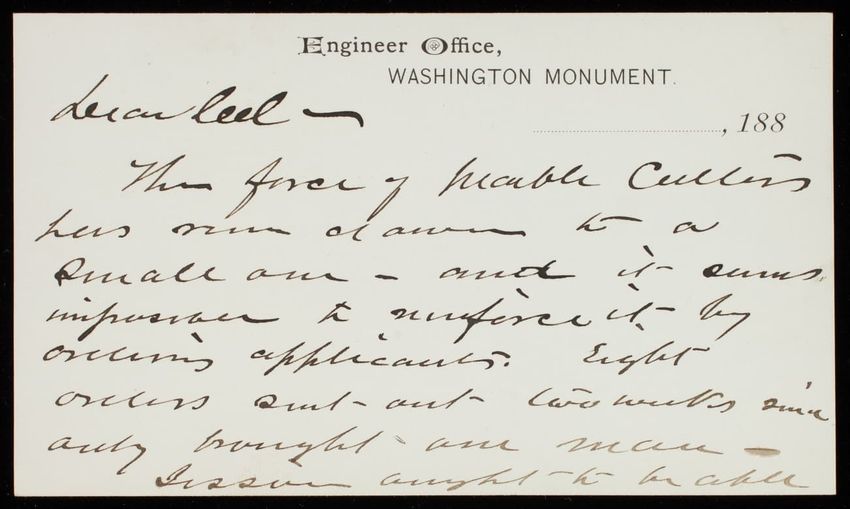 Engineer Office,
WASHINGTON MONUMENT.
, 188
Dear Col —
The force of Marble Cutters
has run down to a
small one — and it seems
impossible to reinforce it by
ordering applicants. Eight
orders sent out two weeks since
only brought one man —
Sisson ought to be able